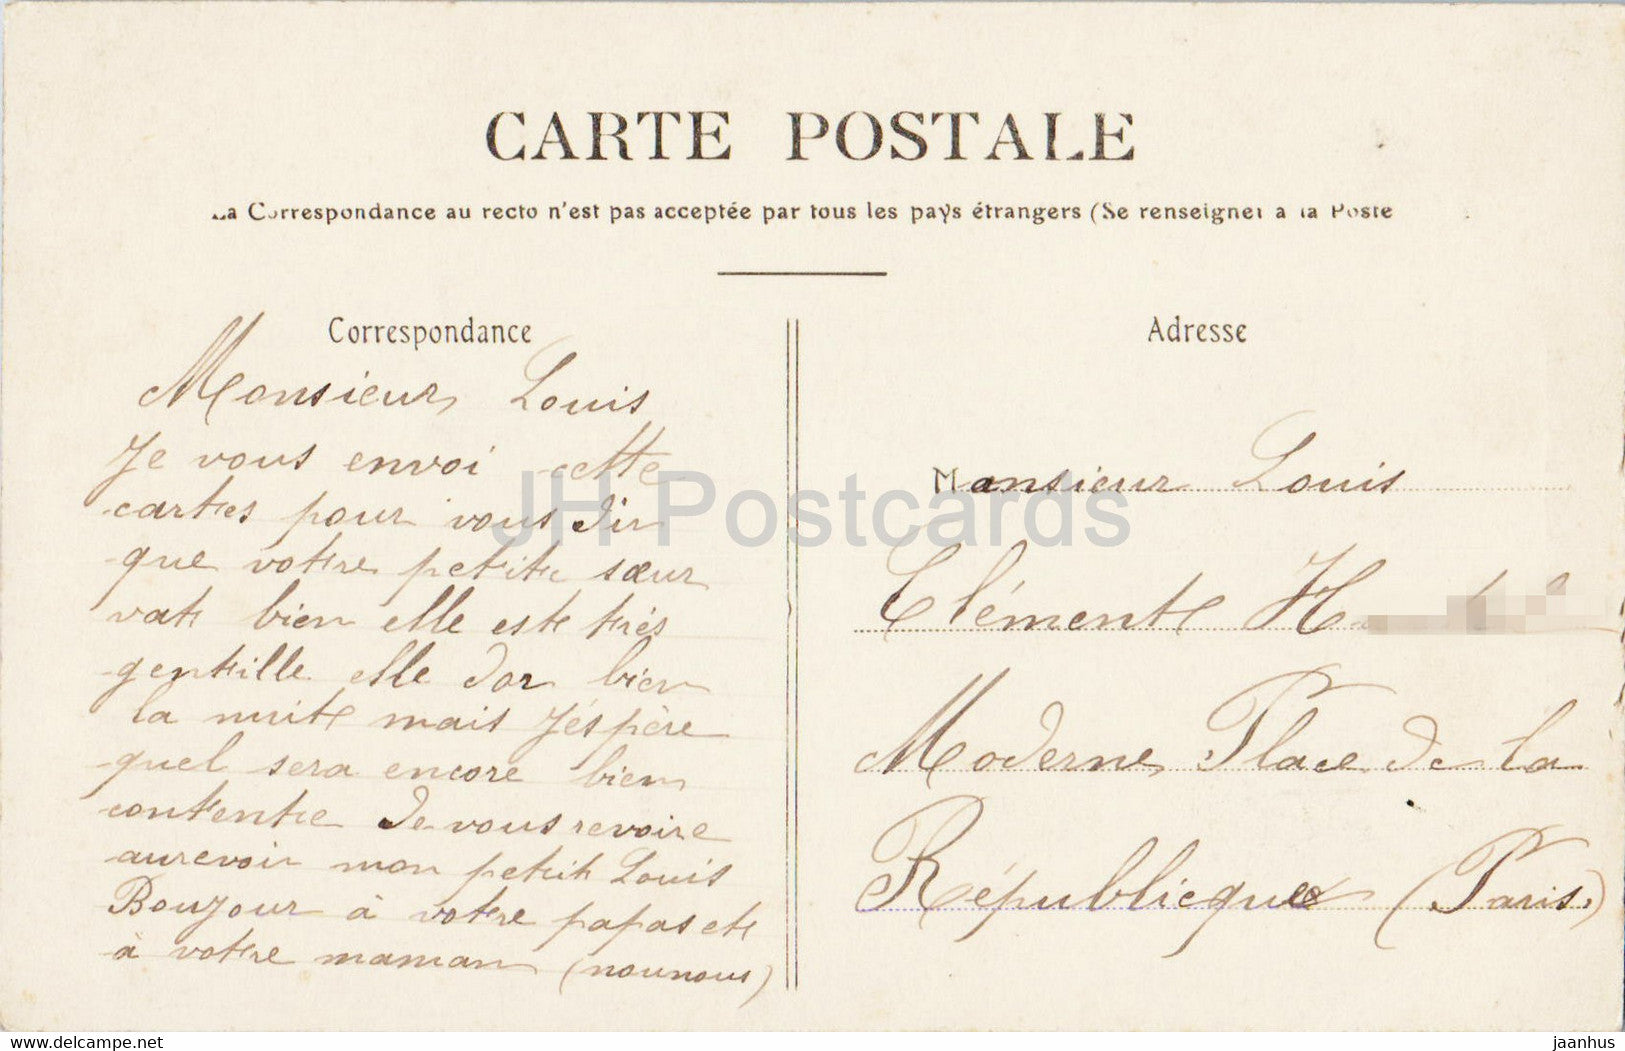 CARTE POSTALE
La Correspondance au recto n'est pas acceptée par tous les pays étrangers (Se renseigner a la Poste
Correspondance
Monsieur Louis
Je vous envoi cette
cartes pour vous dir
que votre petite sœur
vate bien elle este trés
gentille elle dor bien
la nuite mais j'éspère
quel sera encore bien
contente de vous revoire
aurevoir mon petit Louis
Boujour à votre papas ete
à votre maman (nounous)
Adresse
Monsieur Louis
Clémente
Moderne Place de la
République (Paris.)
JH Postcards
delcampe.net
jaanhus